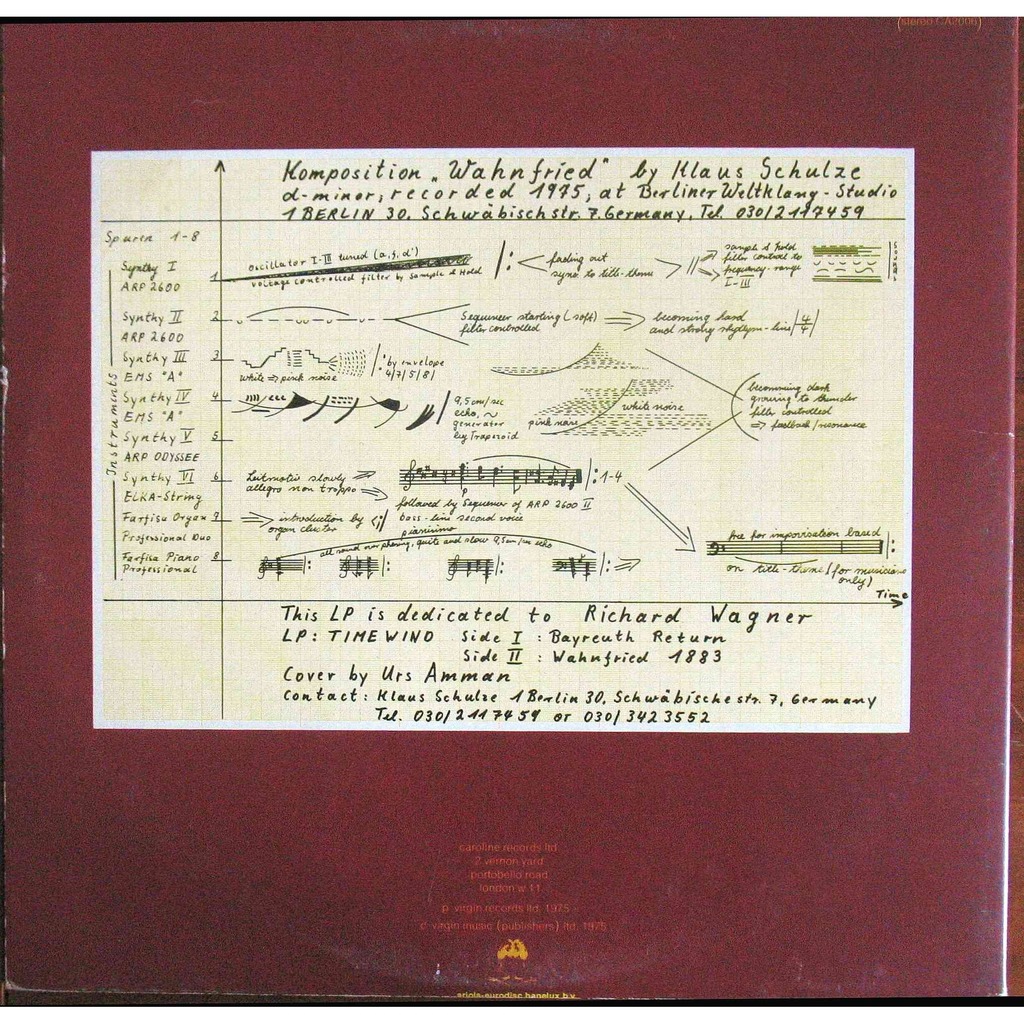 (stereo CA2006)
Komposition „Wahnfried" by Klaus Schulze
d-minor, recorded 1975, at Berliner Weltklang-Studio
1 BERLIN 30. Schwäbischstr. 7. Germany, Tel. 030/2117459
Spuren 1-8
Instruments
Synthy I
ARP 2600
1
oscillator I-III tuned (a, g, d')
voltage controlled filter by Sample & Hold
fading out
sync to title-theme
sample & hold
filter control to
frequency-range
I-III
Synthy II
ARP 2600
2
Sequencer starting (soft)
filter controlled
becoming hard
and strong rhythm-line 4/4
Synthy III
EMS "A"
3
white => pink noise
by envelope
4/7/5/8/
Synthy IV
EMS "A"
4
9,5 cm/sec
echo, ~
generator
by Trapezoid
pink noise
white noise
becomming dark
growing to thunder
filter controlled
=> feedback/resonance
Synthy V
ARP ODYSSEE
5
Synthy VI
ELKA-String
6
Leitmotiv slowly
allegro non troppo
1-4
followed by Sequencer of ARP 2600 II
bass-line second voice
Farfisa Organ
Professional Duo
7
introduction by
organ cluster
pianissimo
Farfisa Piano
Professional
8
all sound over phasing, quite and slow 9,5cm/sec echo
free for improvisation based
on title-theme (for musicians
only)
Time
This LP is dedicated to Richard Wagner
LP: TIMEWIND Side I : Bayreuth Return
Side II : Wahnfried 1883
Cover by Urs Amman
Contact: Klaus Schulze 1 Berlin 30. Schwäbische str. 7, Germany
Tel. 030/2117459 or 030/3423552
caroline records ltd
2 vernon yard
portobello road
london w 11
p. virgin records ltd. 1975
c. virgin music (publishers) ltd. 1975
ariola-eurodisc benelux b.v.